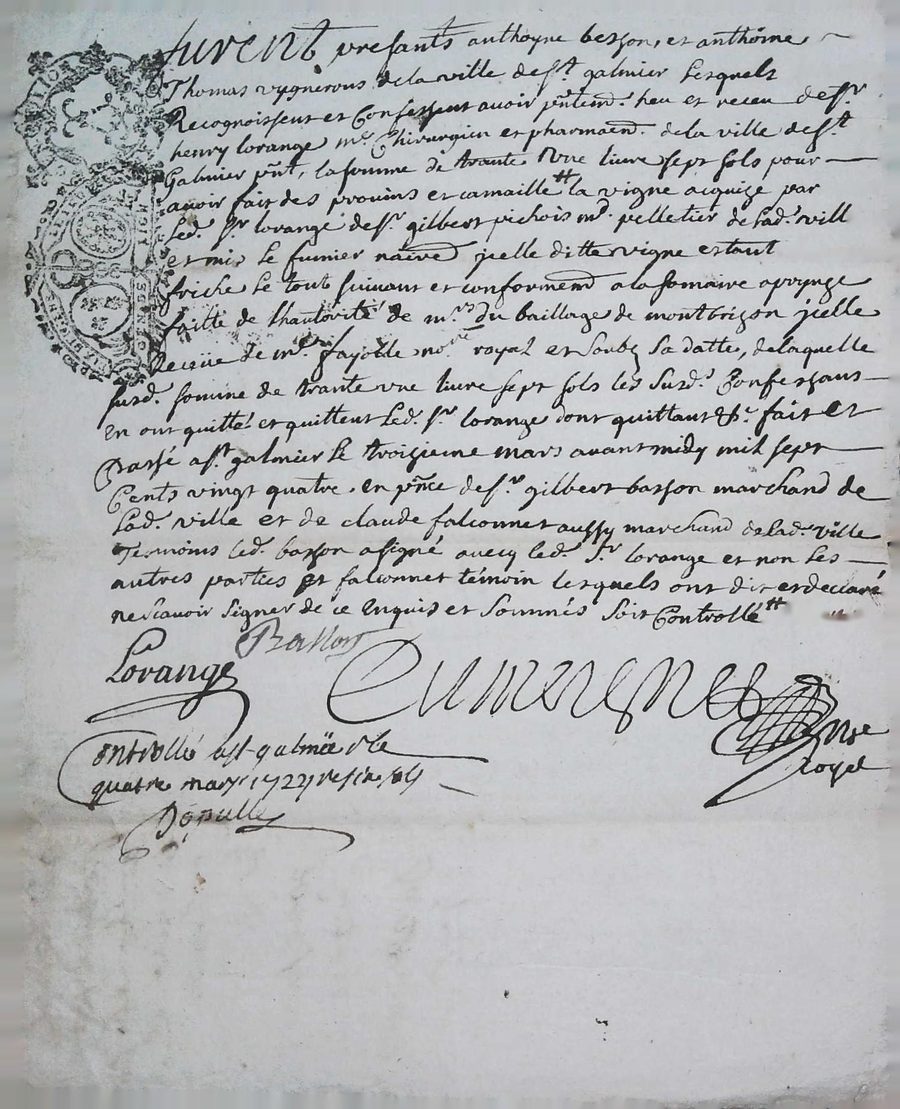 furent presants anthoyne besson, et anthoine
Thomas vygnerous de la ville de st galmier lesquels
Recognoissent et Confessent avoir pntemt. heu et receu de sr
henry lorange mre Chirurgien et pharmacn. de la ville de st
Galmier pnt, la somme de trante une livre sept sols pour
avoir fait des provins et ramaille la vigne acquize par
led. sr lorange de sr gilbert pichois md. pelletier de lad. vill
et mis le fumier naire jcelle ditte vigne estant
friche le tout suivant et conformemt a la somaire aprynze
faitte de lhautorité de mrs du baillage de montbrizon jcelle
Receüe de mre fayolle nore royal et soubz sa datte, de laquelle
susd. somme de trante une livre sept sols les susd. Confessans
en ont quitté et quittent led. sr lorange dont quittant &c. fait et
Passé a st galmier le troizieme mars avant midy mil sept
Cents vingt quatre, en pnce de sr gilbert basson marchand de
lad. ville et de claude falconnet aussy marchand de lad. ville
Tesmoins led. basson a signé avecq led. sr lorange et non les
autres parties et falconnet témoin lesquels ont dit et declaré
ne scavoir signer de ce Enquis et sommés soit Controllé
Lorange Basson
nre
royal
Controllé a st galmier le
quatre mars 1724